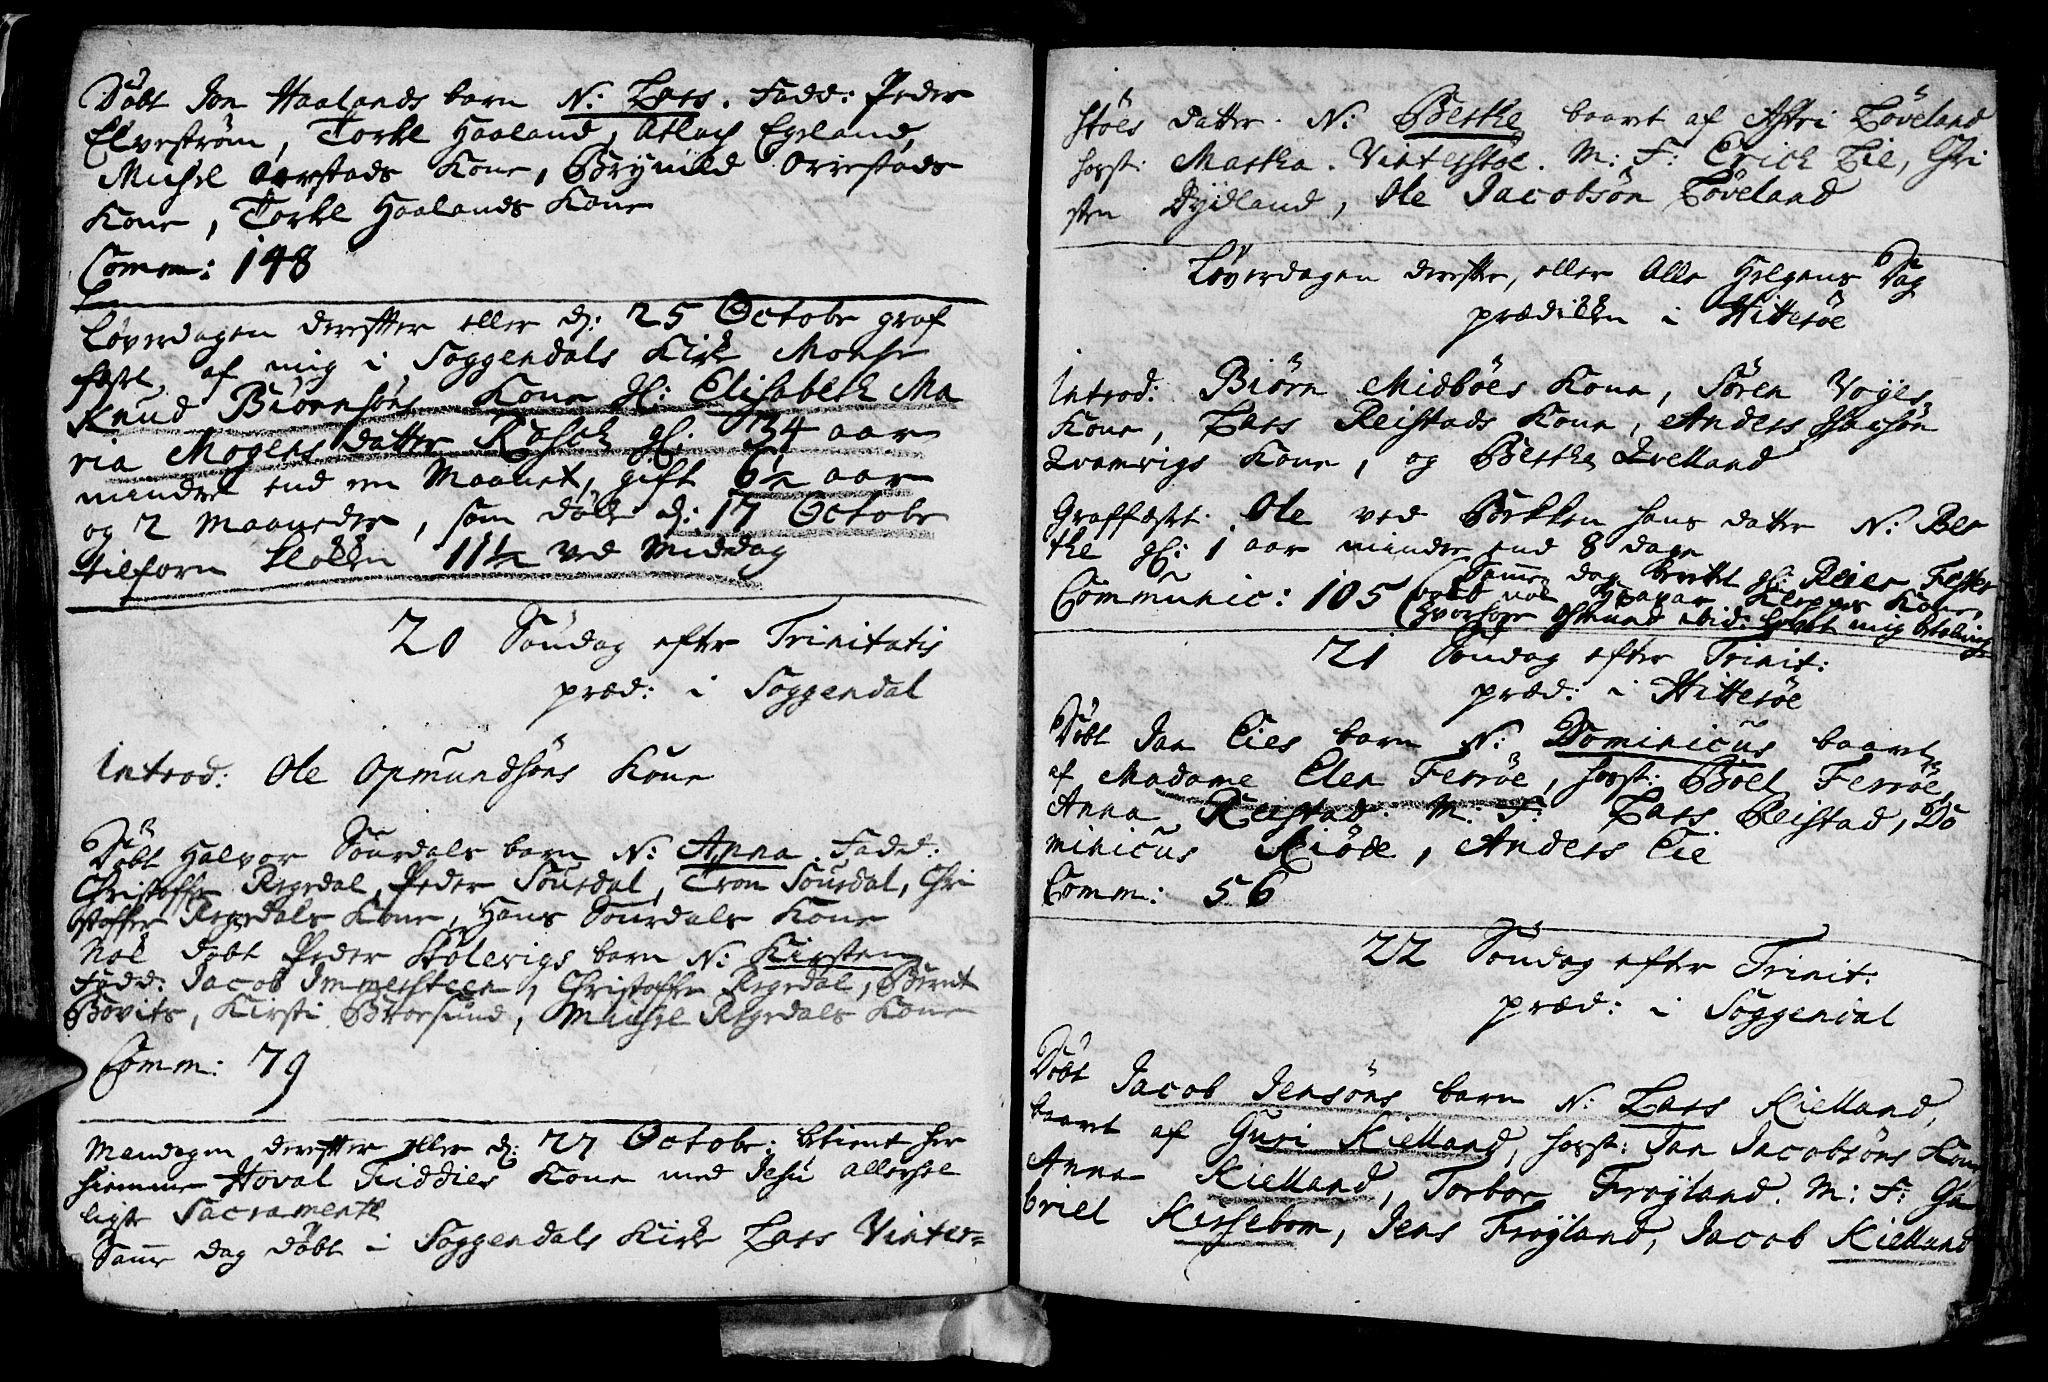 Döbt Jon Haalands barn N: Lars. Fadd: Peder
Elveström, Torkel Haaland, Atlach Egeland,
Michel Orrstads Kone, Brynild Orrestads
Kone, Torkel Haalands Kone
Comm: 148
Løverdagen dereftter eller d: 25 Octobr graf
fæst, af mig i Soggendals Kirke Monsr
Knud Biørnsöns Kone Sl: Elisabeth Ma
ria Mogens datter Rosch gl: 34 aar
mindre end en Maanet, gift 6½ aar
og 2 Maaneder, som döde d: 17 Octobr
tilforn Klokken 11½ ved Middag
20 Søndag efter Trinitatis
præd: i Soggendal
Introd: Ole Opmundsöns Kone
Döbt Halvor Sourdals barn N: Anna. Fadd:
Christoffer Regedal, Peder Sourdal, Tron Sourdal, Chri
stoffer Regedals Kone, Hans Sourdals Kone
Nok döbt Peder Stølevigs barn N: Kirsten
Fadd: Jacob Immersteen, Christoffer Regedal, Bernt
Bovits, Kirsti Broesund, Michel Regedals Kone
Comm: 79
Mandagen dereftter eller d: 27 Octobr: betient her
hiemme Hoval Fiddies Kone med Jesu allerhel
ligste Sacramente
Same dag döbt i Soggendals Kirke Lars Vinter=
stöls datter N: Berthe baaret af Astri Löveland
horst: Martha Vinterstøl. M: F: Erich Lie, Chri
sten Dydland, Ole Jacobsön Löveland
Løverdagen dereftter, eller Alle Helgens Dag
prædikken i Hittesöe
Introd: Biörn Midböes Kone, Sören Voges
Kone, Lars Reistads Kone, Anders Isacsön
Qvamvigs Kone, og Berthe Qvelland
Graffæstet Ole ved Bekken hans datter N: Ber
the gl: 1 aar mindre end 8 dage
Communic: 105
Same dag berettet gl: Reier
Kone,
mig betaling
21 Søndag efter Trinit:
præd: i Hittesöe
Döbt Jan Eies barn N: Dominicus baaret
af Madame Elen Ferröe, horst: Böel Ferröe,
Anna Reistad. M: F: Lars Reistad, Do
minicus Kiöde, Anders Eie
Comm: 56
22 Søndag efter Trinit:
præd: i Soggendal
Döbt Jacob Jensöns barn N: Lars Kielland,
baaret af Guri Kielland, horst: Jan Jacobsöns Kone
Anna Kielland, Torbor Frøyland. M: F: Ga
briel Kirsebom, Jens Frøyland, Jacob Kielland